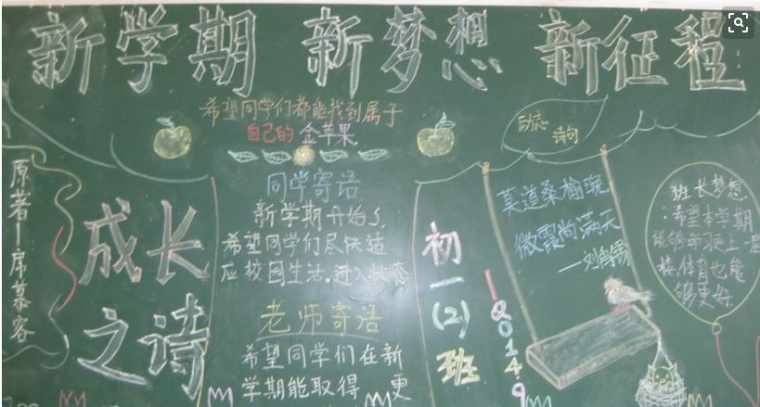 新学期 新梦想 新征程
希望同学们都能找到属于
自己的 金苹果
励志
诗句
原著—席慕容
成长
之诗
同学寄语
新学期开始了,
希望同学们尽快适
应校园生活,进入状态
老师寄语
希望同学们在新
学期能取得 更
初一(2)班
2014 9
莫道桑榆晚
微霞尚满天
班长梦想
:希望本学期
体育也能
够更好